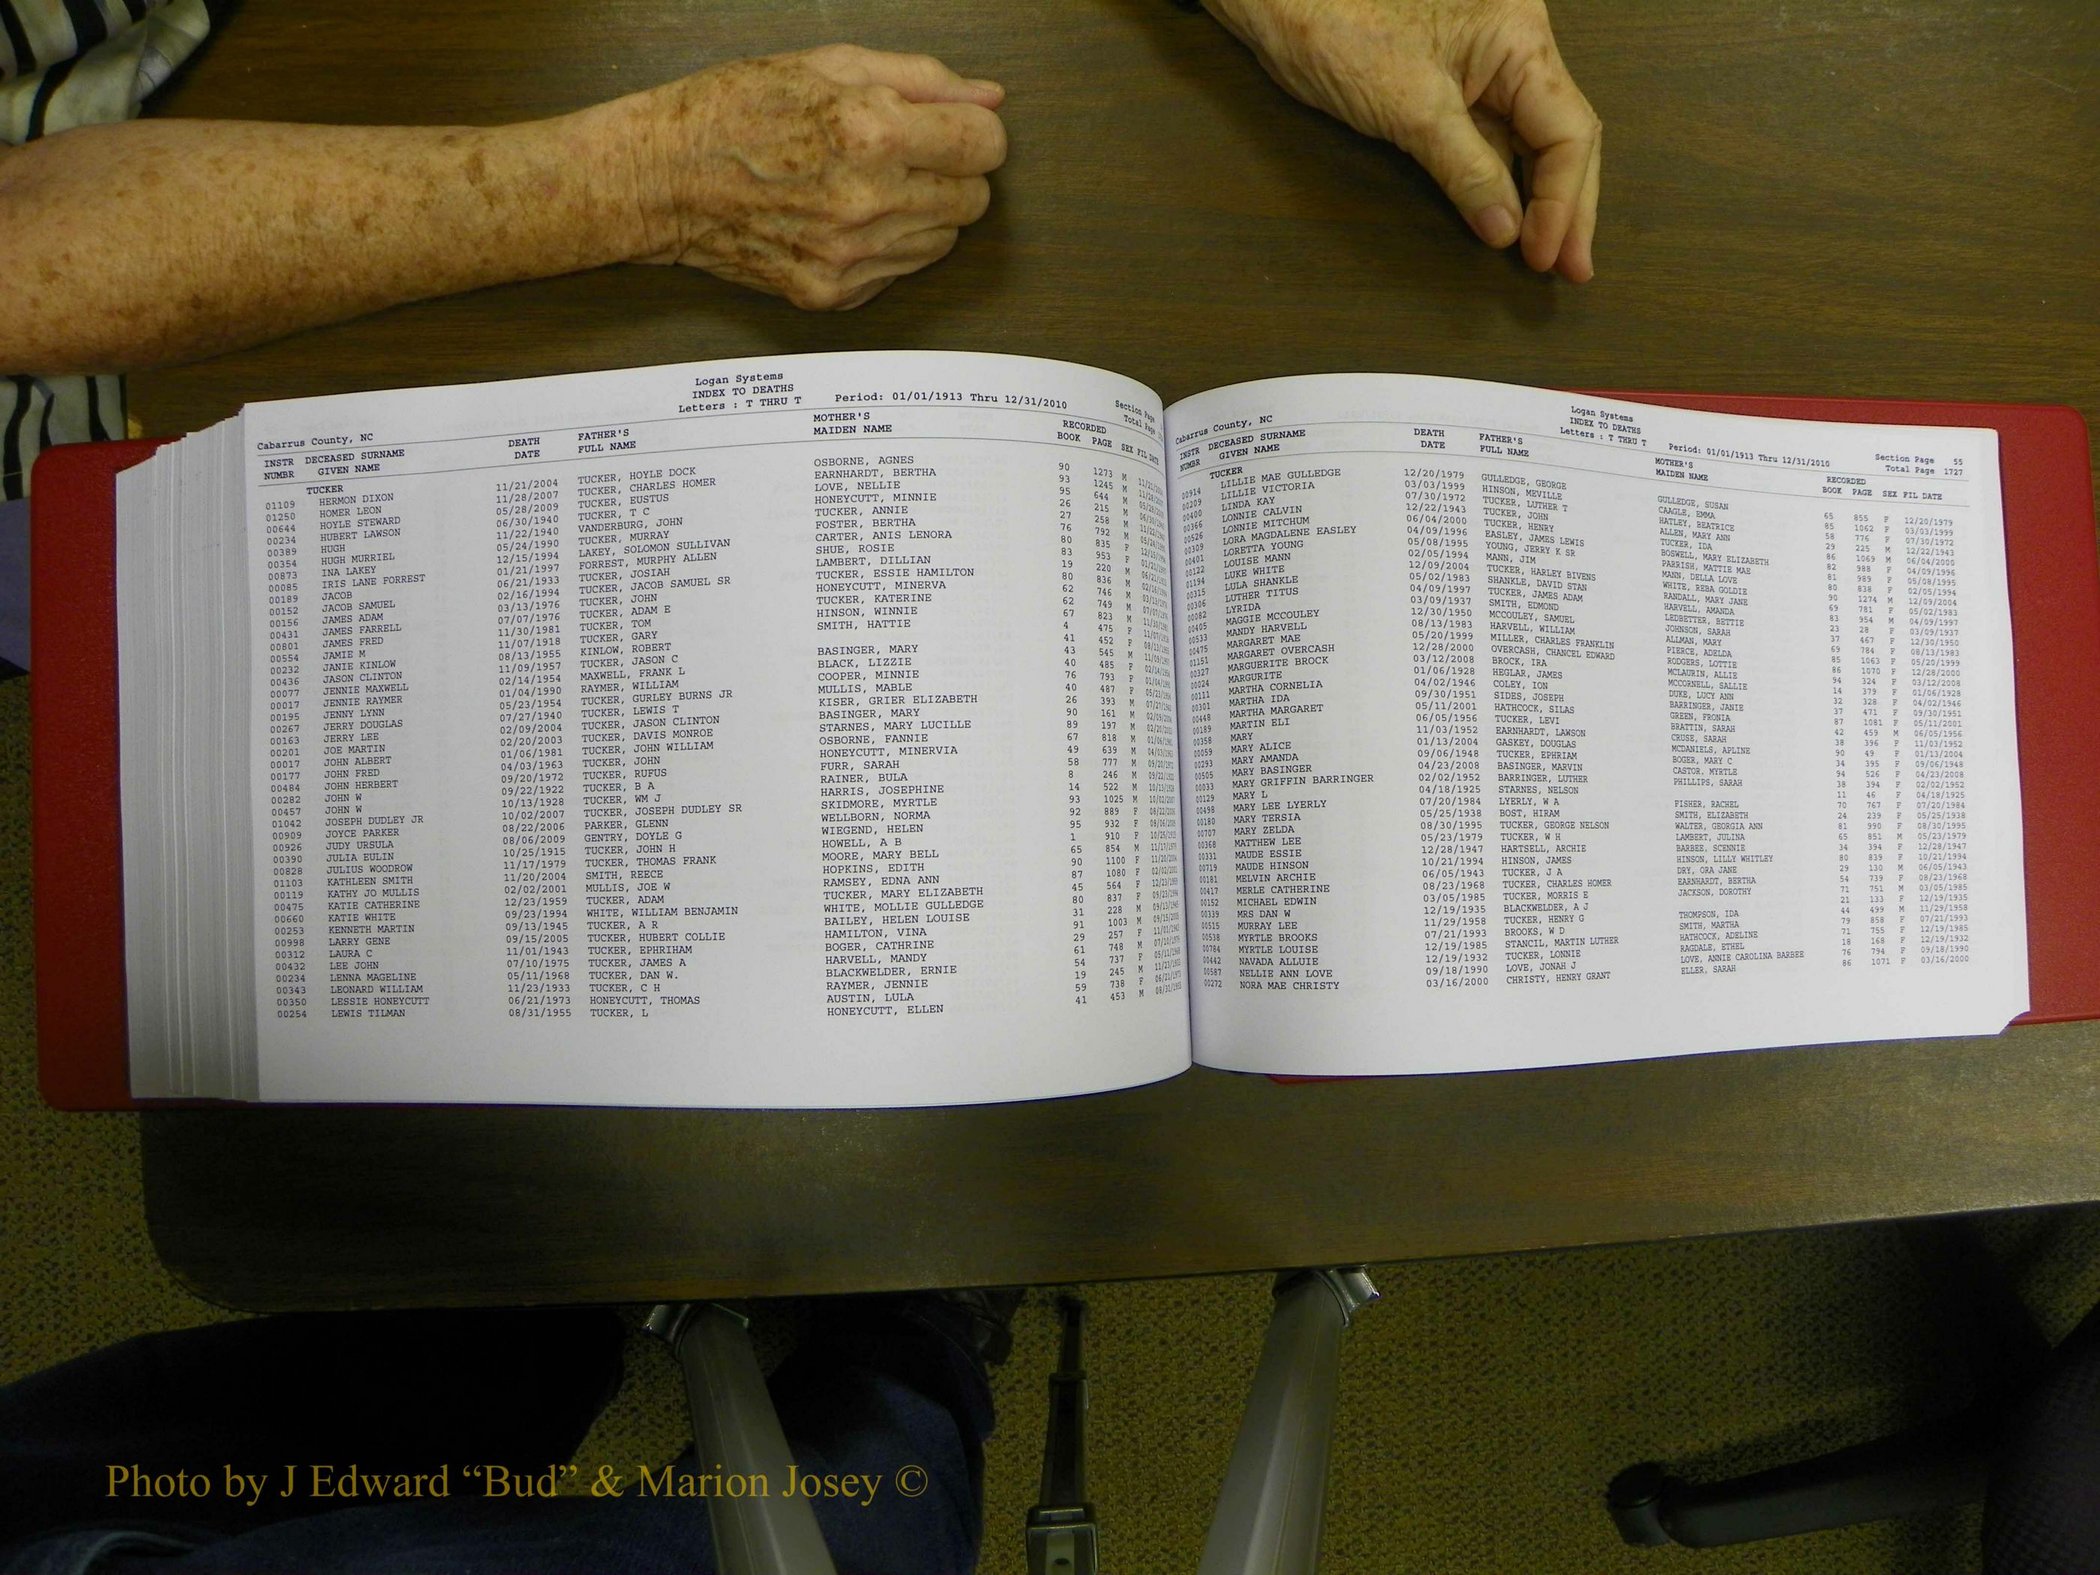 Logan Systems
INDEX TO DEATHS
Letters : T THRU T Period: 01/01/1913 Thru 12/31/2010 Section Page
Cabarrus County, NC Total Page
INSTR NUMBR DECEASED SURNAME GIVEN NAME DEATH DATE FATHER'S FULL NAME MOTHER'S MAIDEN NAME RECORDED BOOK PAGE SEX FIL DATE
TUCKER
01109 HERMON DIXON 11/21/2004 TUCKER, HOYLE DOCK OSBORNE, AGNES 90 1273 M
01250 HOMER LEON 11/28/2007 TUCKER, CHARLES HOMER EARNHARDT, BERTHA 93 1245 M
00644 HOYLE STEWARD 05/28/2009 TUCKER, EUSTUS LOVE, NELLIE 95 644 M
00234 HUBERT LAWSON 06/30/1940 TUCKER, T C HONEYCUTT, MINNIE 26 215 M
00389 HUGH 11/22/1940 VANDERBURG, JOHN TUCKER, ANNIE 27 258 M
00354 HUGH MURRIEL 05/24/1990 TUCKER, MURRAY FOSTER, BERTHA 76 792 M
00873 INA LAKEY 12/15/1994 LAKEY, SOLOMON SULLIVAN CARTER, ANIS LENORA 80 835 F
00085 IRIS LANE FORREST 01/21/1997 FORREST, MURPHY ALLEN SHUE, ROSIE 83 953 F
00189 JACOB 06/21/1933 TUCKER, JOSIAH LAMBERT, DILLIAN 19 220 M
00152 JACOB SAMUEL 02/16/1994 TUCKER, JACOB SAMUEL SR TUCKER, ESSIE HAMILTON 80 836 M
00156 JAMES ADAM 03/13/1976 TUCKER, JOHN HONEYCUTT, MINERVA 62 746 M
00431 JAMES FARRELL 07/07/1976 TUCKER, ADAM E TUCKER, KATERINE 62 749 M
00801 JAMES FRED 11/30/1981 TUCKER, TOM HINSON, WINNIE 67 823 M
00554 JAMIE M 11/07/1918 TUCKER, GARY SMITH, HATTIE 4 475 F
00232 JANIE KINLOW 08/13/1955 KINLOW, ROBERT 41 452 F
00436 JASON CLINTON 11/09/1957 TUCKER, JASON C BASINGER, MARY 43 545 M
00077 JENNIE MAXWELL 02/14/1954 MAXWELL, FRANK L BLACK, LIZZIE 40 485 F
00017 JENNIE RAYMER 01/04/1990 RAYMER, WILLIAM COOPER, MINNIE 76 793 F
00195 JENNY LYNN 05/23/1954 TUCKER, GURLEY BURNS JR MULLIS, MABLE 40 487 F
00267 JERRY DOUGLAS 07/27/1940 TUCKER, LEWIS T KISER, GRIER ELIZABETH 26 393 M
00163 JERRY LEE 02/09/2004 TUCKER, JASON CLINTON BASINGER, MARY 90 161 M
00201 JOE MARTIN 02/20/2003 TUCKER, DAVIS MONROE STARNES, MARY LUCILLE 89 197 M
00017 JOHN ALBERT 01/06/1981 TUCKER, JOHN WILLIAM OSBORNE, FANNIE 67 818 M
00177 JOHN FRED 04/03/1963 TUCKER, JOHN HONEYCUTT, MINERVIA 49 639 M
00484 JOHN HERBERT 09/20/1972 TUCKER, RUFUS FURR, SARAH 58 777 M
00282 JOHN W 09/22/1922 TUCKER, B A RAINER, BULA 8 246 M
00457 JOHN W 10/13/1928 TUCKER, WM J HARRIS, JOSEPHINE 14 522 M
01042 JOSEPH DUDLEY JR 10/02/2007 TUCKER, JOSEPH DUDLEY SR SKIDMORE, MYRTLE 93 1025 M
00909 JOYCE PARKER 08/22/2006 PARKER, GLENN WELLBORN, NORMA 92 889 F
00926 JUDY URSULA 08/06/2009 GENTRY, DOYLE G WIEGEND, HELEN 95 932 F
00390 JULIA EULIN 10/25/1915 TUCKER, JOHN H HOWELL, A B 1 910 F
00828 JULIUS WOODROW 11/17/1979 TUCKER, THOMAS FRANK MOORE, MARY BELL 65 854 M
01103 KATHLEEN SMITH 11/20/2004 SMITH, REECE HOPKINS, EDITH 90 1100 F
00119 KATHY JO MULLIS 02/02/2001 MULLIS, JOE W RAMSEY, EDNA ANN 87 1080 F
00475 KATIE CATHERINE 12/23/1959 TUCKER, ADAM TUCKER, MARY ELIZABETH 45 564 F
00660 KATIE WHITE 09/23/1994 WHITE, WILLIAM BENJAMIN WHITE, MOLLIE GULLEDGE 80 837 F
00253 KENNETH MARTIN 09/13/1945 TUCKER, A R BAILEY, HELEN LOUISE 31 228 M
00998 LARRY GENE 09/15/2005 TUCKER, HUBERT COLLIE HAMILTON, VINA 91 1003 M
00312 LAURA C 11/01/1943 TUCKER, EPHRIHAM BOGER, CATHRINE 29 257 F
00432 LEE JOHN 07/10/1975 TUCKER, JAMES A HARVELL, MANDY 61 748 M
00234 LENNA MAGELINE 05/11/1968 TUCKER, DAN W. BLACKWELDER, ERNIE 54 737 F
00343 LEONARD WILLIAM 11/23/1933 TUCKER, C H RAYMER, JENNIE 19 245 M
00350 LESSIE HONEYCUTT 06/21/1973 HONEYCUTT, THOMAS AUSTIN, LULA 59 738 F
00254 LEWIS TILMAN 08/31/1955 TUCKER, L HONEYCUTT, ELLEN 41 453 M
Logan Systems
INDEX TO DEATHS
Letters : T THRU T Period: 01/01/1913 Thru 12/31/2010 Section Page 55
Cabarrus County, NC Total Page 1727
INSTR NUMBR DECEASED SURNAME GIVEN NAME DEATH DATE FATHER'S FULL NAME MOTHER'S MAIDEN NAME RECORDED BOOK PAGE SEX FIL DATE
TUCKER
00914 LILLIE MAE GULLEDGE 12/20/1979 GULLEDGE, GEORGE GULLEDGE, SUSAN 65 855 F 12/20/1979
00209 LILLIE VICTORIA 03/03/1999 HINSON, MEVILLE CAAGLE, EMMA 85 1062 F 03/03/1999
00400 LINDA KAY 07/30/1972 TUCKER, LUTHER T HATLEY, BEATRICE 58 776 F 07/30/1972
00366 LONNIE CALVIN 12/22/1943 TUCKER, JOHN ALLEN, MARY ANN 29 225 M 12/22/1943
00526 LONNIE MITCHUM 06/04/2000 TUCKER, HENRY TUCKER, IDA 86 1069 M 06/04/2000
00309 LORA MAGDALENE EASLEY 04/09/1996 EASLEY, JAMES LEWIS BOSWELL, MARY ELIZABETH 82 988 F 04/09/1996
00401 LORETTA YOUNG 05/08/1995 YOUNG, JERRY K SR PARRISH, MATTIE MAE 81 989 F 05/08/1995
00122 LOUISE MANN 02/05/1994 MANN, JIM MANN, DELLA LOVE 80 838 F 02/05/1994
01194 LUKE WHITE 12/09/2004 TUCKER, HARLEY BIVENS WHITE, REBA GOLDIE 90 1274 M 12/09/2004
00315 LULA SHANKLE 05/02/1983 SHANKLE, DAVID STAN RANDALL, MARY JANE 69 781 F 05/02/1983
00306 LUTHER TITUS 04/09/1997 TUCKER, JAMES ADAM HARVELL, AMANDA 83 954 M 04/09/1997
00082 LYRIDA 03/09/1937 SMITH, EDMOND LEDBETTER, BETTIE 23 28 F 03/09/1937
00405 MAGGIE MCCOULEY 12/30/1950 MCCOULEY, SAMUEL JOHNSON, SARAH 37 467 F 12/30/1950
00533 MANDY HARVELL 08/13/1983 HARVELL, WILLIAM ALLMAN, MARY 69 784 F 08/13/1983
00475 MARGARET MAE 05/20/1999 MILLER, CHARLES FRANKLIN PIERCE, ADELDA 85 1063 F 05/20/1999
01151 MARGARET OVERCASH 12/28/2000 OVERCASH, CHANCEL EDWARD RODGERS, LOTTIE 86 1070 F 12/28/2000
00327 MARGUERITE BROCK 03/12/2008 BROCK, IRA MCLAURIN, ALLIE 94 324 F 03/12/2008
00024 MARGURITE 01/06/1928 HEGLAR, JAMES MCCORNELL, SALLIE 14 379 F 01/06/1928
00111 MARTHA CORNELIA 04/02/1946 COLEY, ION DUKE, LUCY ANN 32 328 F 04/02/1946
00301 MARTHA IDA 09/30/1951 SIDES, JOSEPH BARRINGER, JANIE 37 471 F 09/30/1951
00448 MARTHA MARGARET 05/11/2001 HATHCOCK, SILAS GREEN, FRONIA 87 1081 F 05/11/2001
00189 MARTIN ELI 06/05/1956 TUCKER, LEVI BRATTIN, SARAH 42 459 M 06/05/1956
00358 MARY 11/03/1952 EARNHARDT, LAWSON CRUSE, SARAH 38 396 F 11/03/1952
00059 MARY ALICE 01/13/2004 GASKEY, DOUGLAS MCDANIELS, APLINE 90 49 F 01/13/2004
00293 MARY AMANDA 09/06/1948 TUCKER, EPHRIAM BOGER, MARY C 34 395 F 09/06/1948
00505 MARY BASINGER 04/23/2008 BASINGER, MARVIN CASTOR, MYRTLE 94 526 F 04/23/2008
00033 MARY GRIFFIN BARRINGER 02/02/1952 BARRINGER, LUTHER PHILLIPS, SARAH 38 394 F 02/02/1952
00129 MARY L 04/18/1925 STARNES, NELSON 11 46 F 04/18/1925
00498 MARY LEE LYERLY 07/20/1984 LYERLY, W A FISHER, RACHEL 70 767 F 07/20/1984
00180 MARY TERSIA 05/25/1938 BOST, HIRAM SMITH, ELIZABETH 24 239 F 05/25/1938
00707 MARY ZELDA 08/30/1995 TUCKER, GEORGE NELSON WALTER, GEORGIA ANN 81 990 F 08/30/1995
00368 MATTHEW LEE 05/23/1979 TUCKER, W H LAMBERT, JULINA 65 851 M 05/23/1979
00331 MAUDE ESSIE 12/28/1947 HARTSELL, ARCHIE BARBEE, SCENNIE 34 394 F 12/28/1947
00719 MAUDE HINSON 10/21/1994 HINSON, JAMES HINSON, LILLY WHITLEY 80 839 F 10/21/1994
00181 MELVIN ARCHIE 06/05/1943 TUCKER, J A DRY, ORA JANE 29 130 M 06/05/1943
00417 MERLE CATHERINE 08/23/1968 TUCKER, CHARLES HOMER EARNHARDT, BERTHA 54 739 F 08/23/1968
00152 MICHAEL EDWIN 03/05/1985 TUCKER, MORRIS E JACKSON, DOROTHY 71 751 M 03/05/1985
00339 MRS DAN W 12/19/1935 BLACKWELDER, A J 21 133 F 12/19/1935
00515 MURRAY LEE 11/29/1958 TUCKER, HENRY G THOMPSON, IDA 44 499 M 11/29/1958
00538 MYRTLE BROOKS 07/21/1993 BROOKS, W D SMITH, MARTHA 79 858 F 07/21/1993
00784 MYRTLE LOUISE 12/19/1985 STANCIL, MARTIN LUTHER HATHCOCK, ADELINE 71 755 F 12/19/1985
00442 NAVADA ALLUIE 12/19/1932 TUCKER, LONNIE RAGDALE, ETHEL 18 168 F 12/19/1932
00587 NELLIE ANN LOVE 09/18/1990 LOVE, JONAH J LOVE, ANNIE CAROLINA BARBEE 76 794 F 09/18/1990
00272 NORA MAE CHRISTY 03/16/2000 CHRISTY, HENRY GRANT ELLER, SARAH 86 1071 F 03/16/2000
Photo by J Edward “Bud” & Marion Josey ©